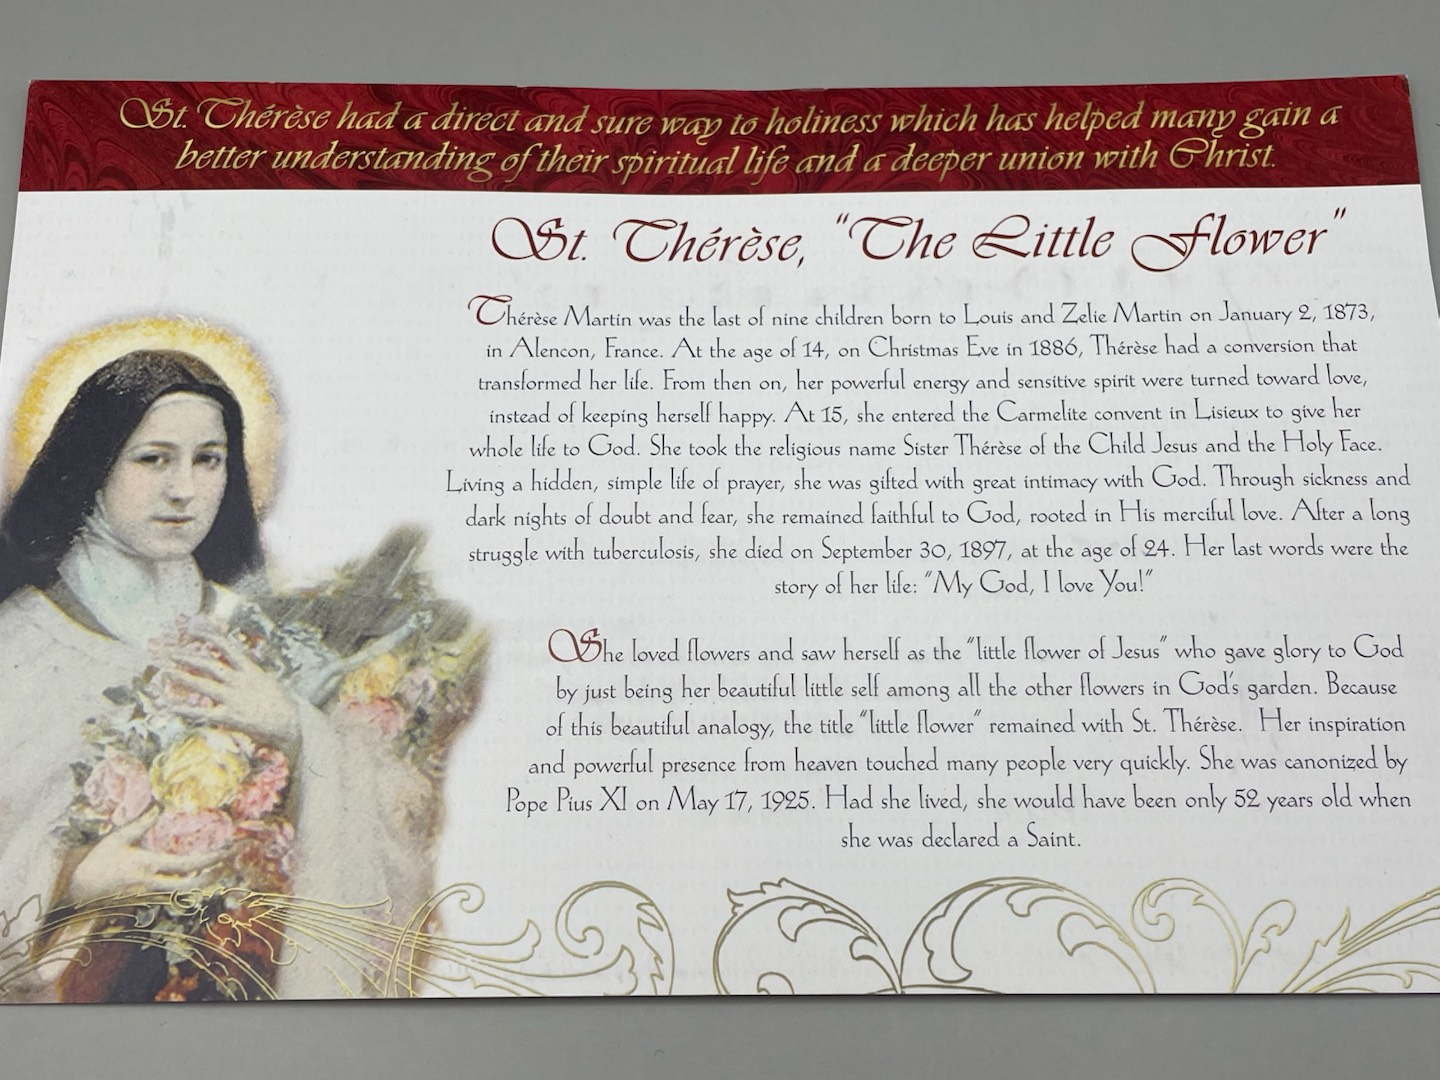 St. Thérèse had a direct and sure way to holiness which has helped many gain a
better understanding of their spiritual life and a deeper union with Christ.
St. Thérèse, "The Little Flower"
Thérèse Martin was the last of nine children born to Louis and Zelie Martin on January 2, 1873,
in Alencon, France. At the age of 14, on Christmas Eve in 1886, Thérèse had a conversion that
transformed her life. From then on, her powerful energy and sensitive spirit were turned toward love,
instead of keeping herself happy. At 15, she entered the Carmelite convent in Lisieux to give her
whole life to God. She took the religious name Sister Thérèse of the Child Jesus and the Holy Face.
Living a hidden, simple life of prayer, she was gifted with great intimacy with God. Through sickness and
dark nights of doubt and fear, she remained faithful to God, rooted in His merciful love. After a long
struggle with tuberculosis, she died on September 30, 1897, at the age of 24. Her last words were the
story of her life: "My God, I love You!"
She loved flowers and saw herself as the "little flower of Jesus" who gave glory to God
by just being her beautiful little self among all the other flowers in God's garden. Because
of this beautiful analogy, the title "little flower" remained with St. Thérèse. Her inspiration
and powerful presence from heaven touched many people very quickly. She was canonized by
Pope Pius XI on May 17, 1925. Had she lived, she would have been only 52 years old when
she was declared a Saint.